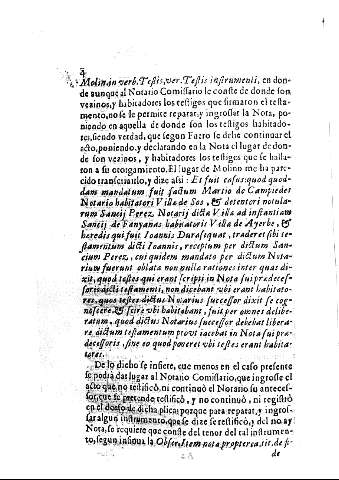 4
Molin.in verb.Testis,ver.Testis instrumenti, en don-
de aunque al Notario Comissario le conste de donde son
vezinos,y habitadores los testigos que firmaron el testa-
mento,no se le permite reparar,y ingrossar la Nota, po-
niendo en aquella de donde son los testigos habitado-
res,siendo verdad, que segun Fuero se debe continuar el
acto,poniendo,y declarando en la Nota el lugar de don-
de son vezinos, y habitadores los testigos que se halla-
ron a su otorgamiento. El lugar de Molino me ha pare-
cido transcriuirlo,y dize assi : Et fuit casus:quod quod-
dam mandatum fuit factum Martio de Campiedet
Notario habitatori Villa de Sos, & detentori notula-
rum Sancij Perez, Notarij dicta Villa ad instantiam
Sancij de Fanyanas habitatoris Villa de Ayerbe, &
heredis qui fuit Ioannis Darasquat, traderet sibi te-
stamentum dicti Ioannis, receptum per dictum San-
cium Perez, cui quidem mandato per dictum Nota-
rium fuerunt oblata non nulla rationes inter quas di-
xit, quod testes qui erant scripti in Nota sui prædeces-
soris dicti testamenti, non dicebant vbi erant habitato-
res, quos testes dictus Notarius successor dixit se cog-
noscere, & scire vbi habitabant, fuit per omnes delibe-
ratum, quod dictus Notarius successor debebat libera-
re dictum testamentum prout iacebat in Nota sui præ-
decessoris, sine eo quod poneret vbi testes erant habita-
tores.
De lo dicho se infiere, que menos en el caso presente
se podrà dar lugar al Notario Comissario, que ingrosse el
acto que no testificò, ni continuò el Notario su anteces-
sor, que se pretende testificò, y no continuò, ni registrò
en el dosso de dicha plica; porque para reparar, y ingros-
sar algun instrumento, que se dize se testificò, y del no ay
Nota, se requiere que conste del tenor del tal instrumen-
to, segun insinua la Obser. Item nota propterea, tit. de fi-
de